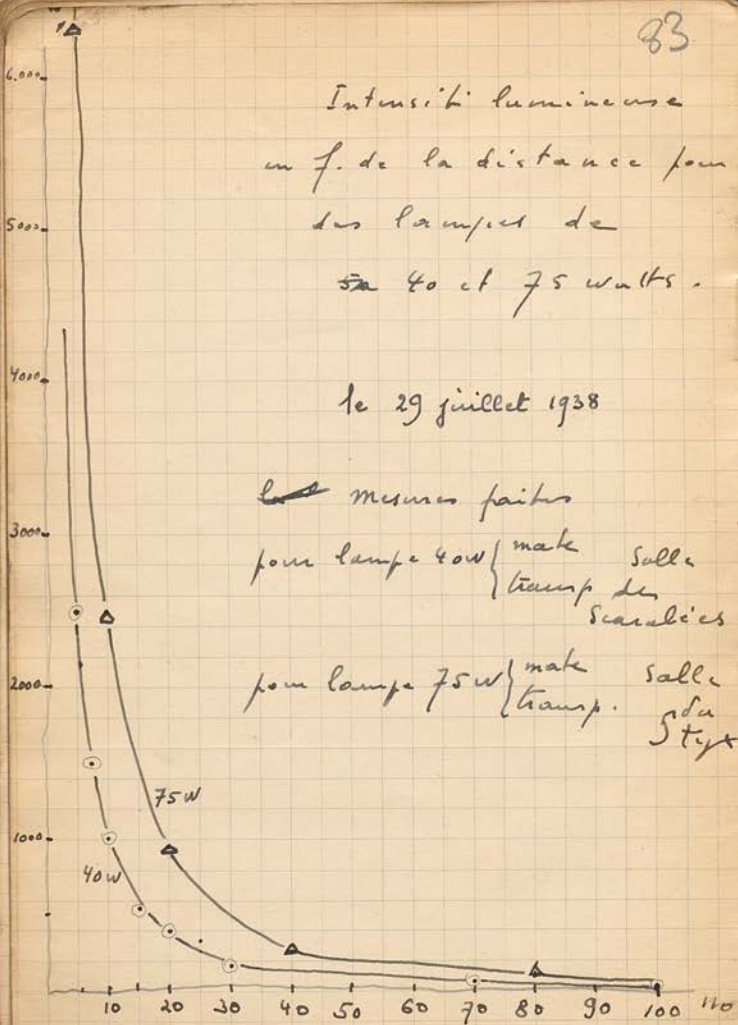 83
Intensité lumineuse
en f. de la distance pour
des lampes de
40 et 75 watts.
le 29 juillet 1938
mesures faites
pour lampe 40W { mate Salle
transp des
Scarabées
pour lampe 75W { mate Salle
transp. du
Styx
6.000
5000
4000
3000
2000
1000
75W
40W
10 20 30 40 50 60 70 80 90 100 110